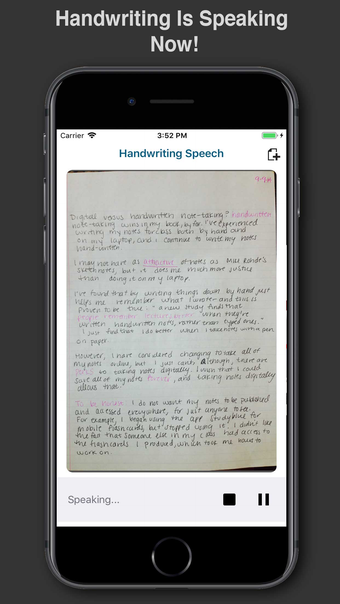 Handwriting Is Speaking
Now!
Carrier 3:52 PM
Handwriting Speech
Digital versus handwritten note-taking? handwritten
note-taking wins in my book, by far. I've experienced
writing my notes for class both by hand and
on my laptop, and I continue to write my notes
hand-written.
I may not have as attractive of notes as Mike Rohde's
sketchnotes, but it does me much more justice
than doing it on my laptop.
I've found that by writing things down by hand, just
helps me remember what I wrote - and this is
proven to be true - "a new study finds that
people remember lectures better when they've
written handwritten notes, rather than typed ones."
I just find that I do better when I take notes with a pen
on paper.
However, I have considered changing to take all of
my notes online, but I just can't. Although, there are
to taking notes digitally. I wish that I could
save all of my notes forever, and taking notes digitally
allows that.
To be honest I do not want my notes to be published
and accessed everywhere, for just anyone to see.
For example, I out the app StudyBlue for
mobile flashcards, but stopped using it. I didn't like
the fact that someone else in my class had access to
the flashcards I produced, which took me hours to
work on.
Speaking...